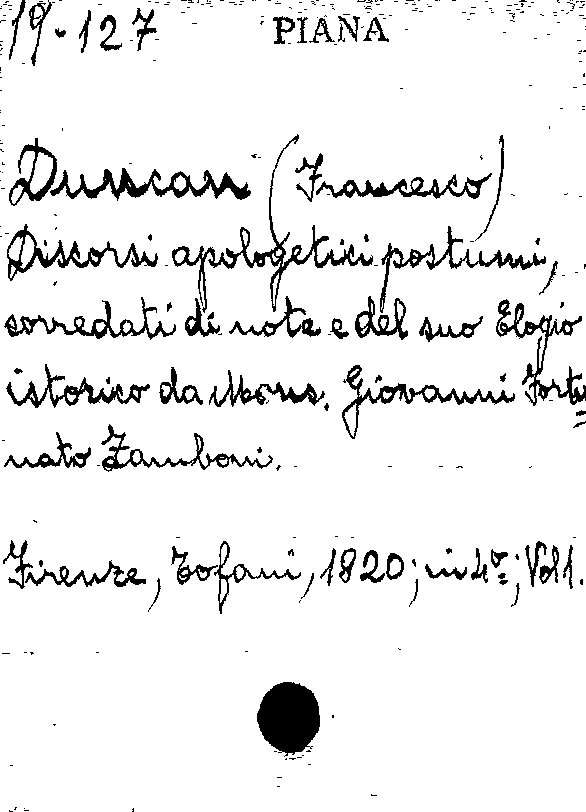 19-127 PIANA
Duncan (Francesco)
Discorsi apologetici postumi,
corredati di note e del suo Elogio
istorico da Mons. Giovanni Fortu=
nato Zamboni.
Firenze, Tofani, 1820; in 4º; Vol 1.